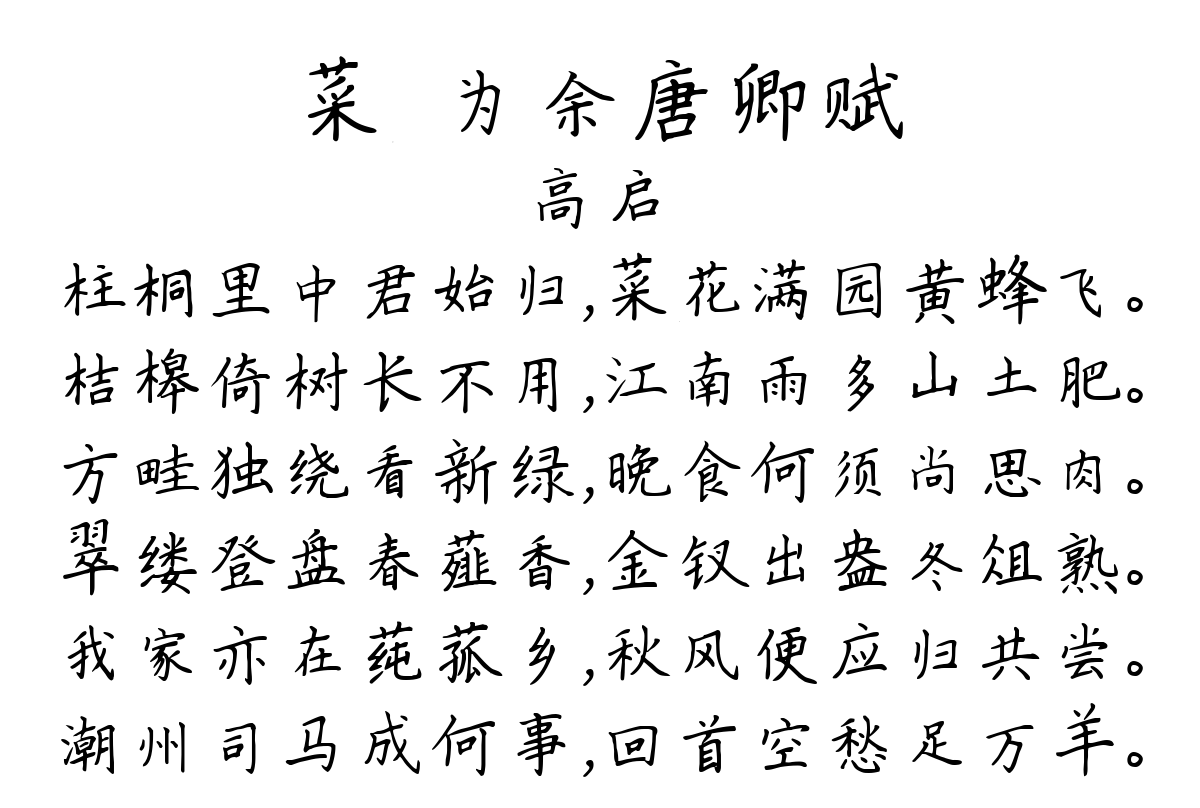 菜 为余唐卿赋
高启
柱桐里中君始归,菜花满园黄蜂飞。
桔槔倚树长不用,江南雨多山土肥。
方畦独绕看新绿,晚食何须尚思肉。
翠缕登盘春薤香,金钗出盎冬俎熟。
我家亦在莼菰乡,秋风便应归共尝。
潮州司马成何事,回首空愁足万羊。